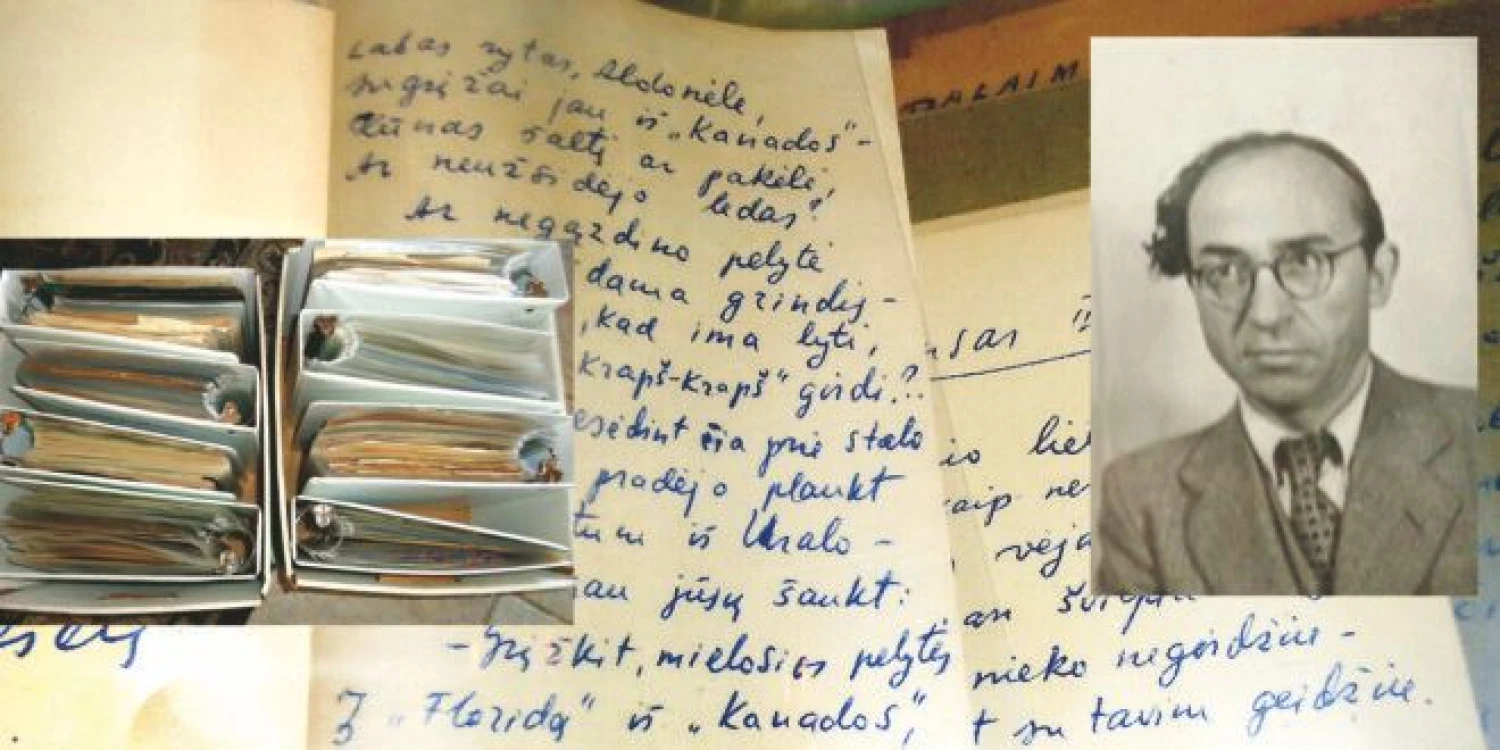 Labas rytas, Aldonėle,
sugrįžai jau iš „Kanados“ -
Kūnas šaltį ar pakėlė,
Ar neužšidėjo ledas?
Ar negązdino pelytė
dama grindis -
, kad ima lyti,
Krapš-Krapš“ girdi.?
esėdint čia prie stalo
pradėjo plaukt
iš Uralo -
au jūsų šaukt:
- Grįžkit, mielosios pelytės
Į „Floridą“ iš „Kanados“,
BALAIM
sas II
io lie
aip ne
vėja
an
nieko negirdžiu -
t su tavim geidžiu.